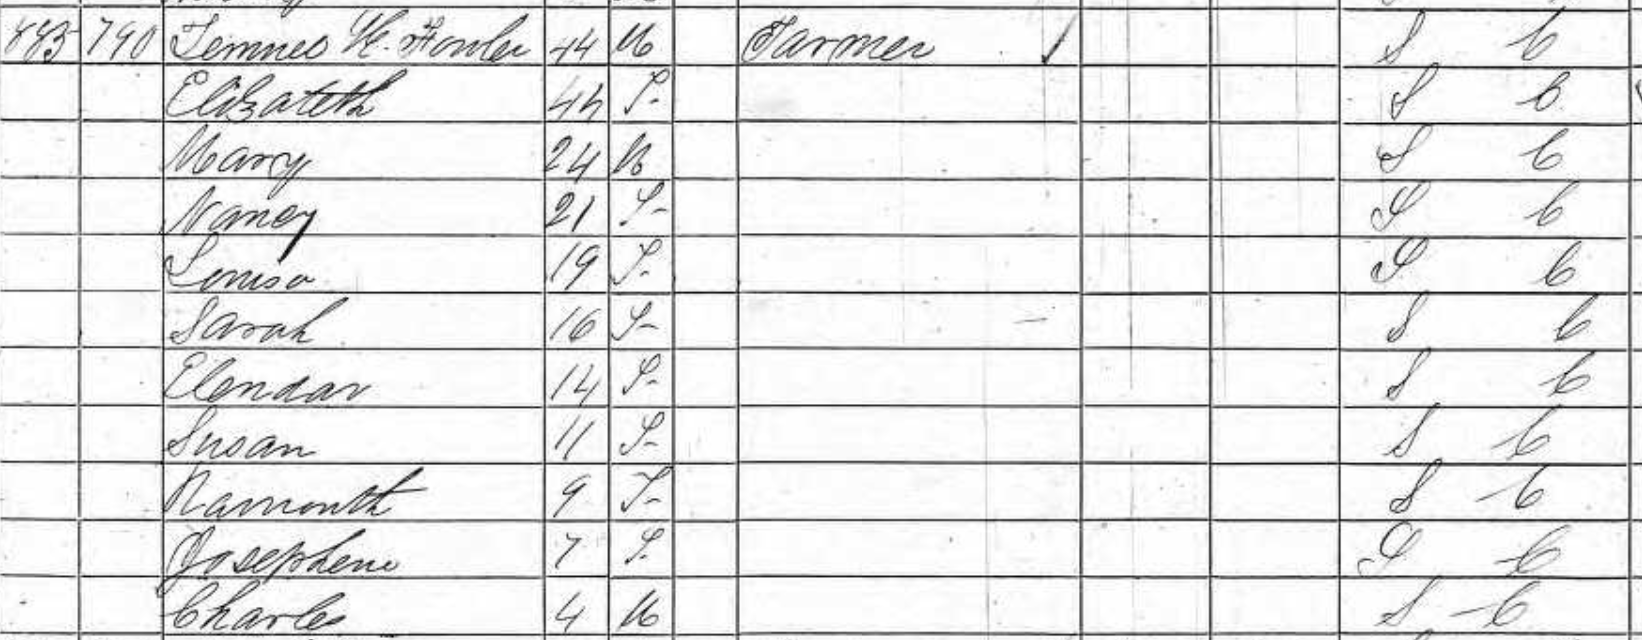 885 790 Temnes W. Fowler 44 M Farmer S C
Elizabeth 44 F S C
Marry 24 M S C
Nancy 21 F S C
Louisa 19 F S C
Sarah 16 F S C
Elendar 14 F S C
Susan 11 F S C
9 F S C
Josephene 7 F S C
Charles 4 M S C